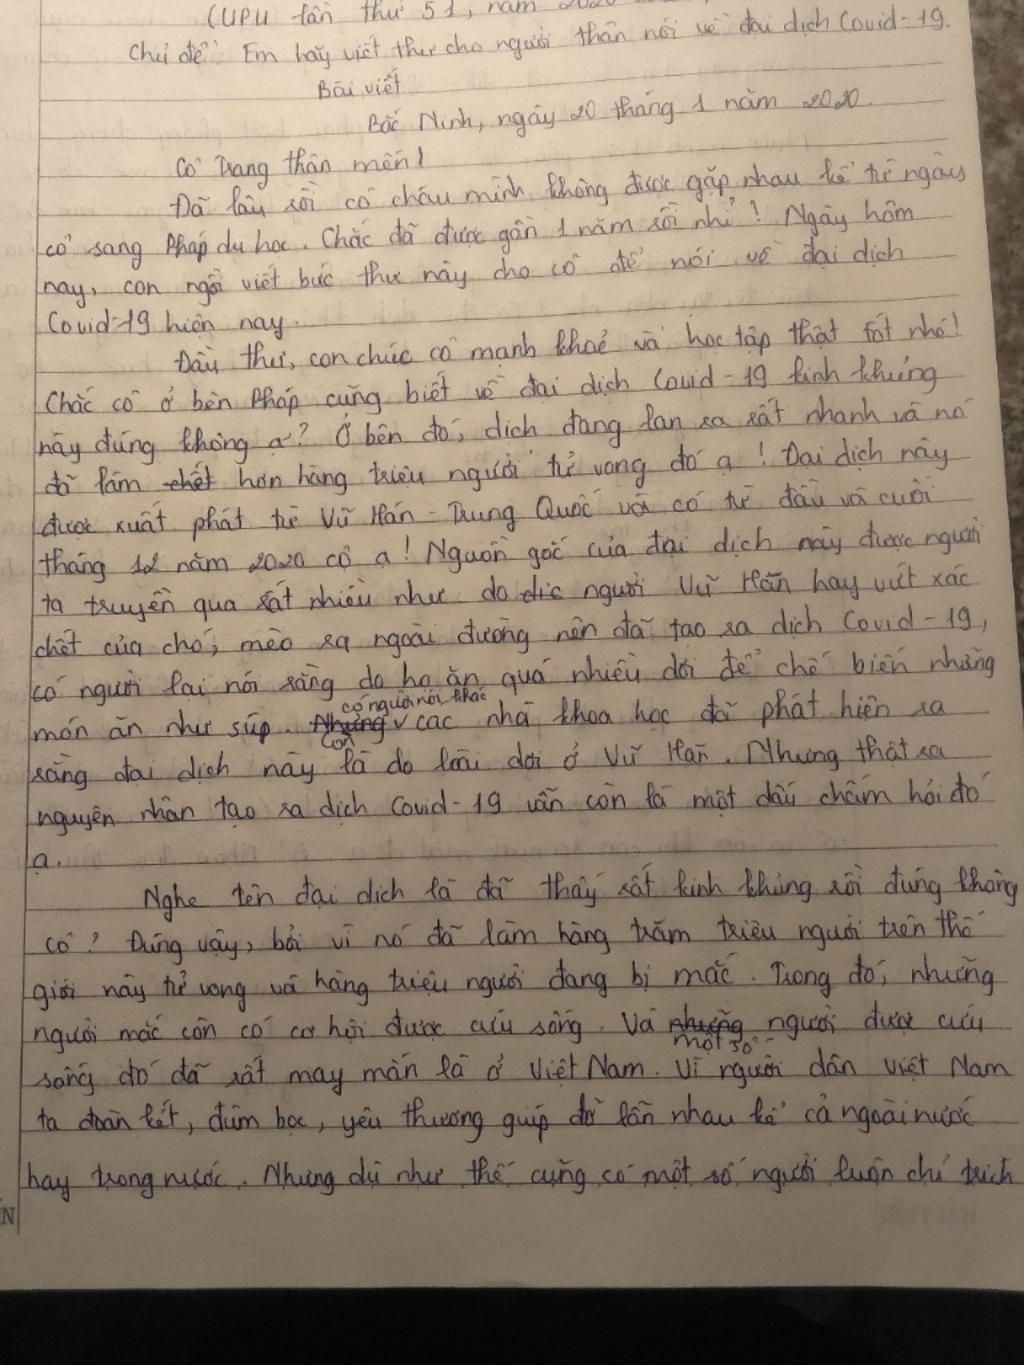 (UPU lần thứ 51, năm 2020
Chủ đề: Em hãy viết thư cho người thân nói về đại dịch Covid-19.
Bài viết
Bắc Ninh, ngày 20 tháng 1 năm 2020.
Cô Trang thân mến!
Đã lâu rồi cô cháu mình không được gặp nhau kể từ ngày
cô sang Pháp du học. Chắc đã được gần 1 năm rồi nhỉ! Ngày hôm
nay, con ngồi viết bức thư này cho cô để nói về đại dịch
Covid-19 hiện nay.
Đầu thư, con chúc cô mạnh khoẻ và học tập thật tốt nhé!
Chắc cô ở bên Pháp cũng biết về đại dịch Covid-19 kinh khủng
này đúng không ạ? Ở bên đó, dịch đang lan ra rất nhanh và nó
đã làm chết hơn hàng triệu người tử vong đó ạ! Đại dịch này
được xuất phát từ Vũ Hán - Trung Quốc và có từ đầu và cuối
tháng 12 năm 2020 cô ạ! Nguồn gốc của đại dịch này được người
ta truyền qua rất nhiều như do dịc người Vũ Hán hay vứt xác
chết của chó, mèo ra ngoài đường nên đã tạo ra dịch Covid-19,
có người lại nói rằng do họ ăn quá nhiều dơi để chế biến những
có người nói khác
món ăn như súp. Nhưng các nhà khoa học đã phát hiện ra
còn
rằng đại dịch này là do loài dơi ở Vũ Hán. Nhưng thật ra
nguyên nhân tạo ra dịch Covid-19 vẫn còn là một dấu chấm hỏi đó
ạ.
Nghe tên đại dịch là đã thấy rất kinh khủng rồi đúng không
cô? Đúng vậy, bởi vì nó đã làm hàng trăm triệu người trên thế
giới này tử vong và hàng triệu người đang bị mắc. Trong đó, những
người mắc còn có cơ hội được cứu sống. Và những người được cứu
một số
sống đó đã rất may mắn là ở Việt Nam. Vì người dân Việt Nam
ta đoàn kết, đùm bọc, yêu thương giúp đỡ lẫn nhau kể cả ngoài nước
hay trong nước. Nhưng dù như thế cũng có một số người luôn chỉ trích